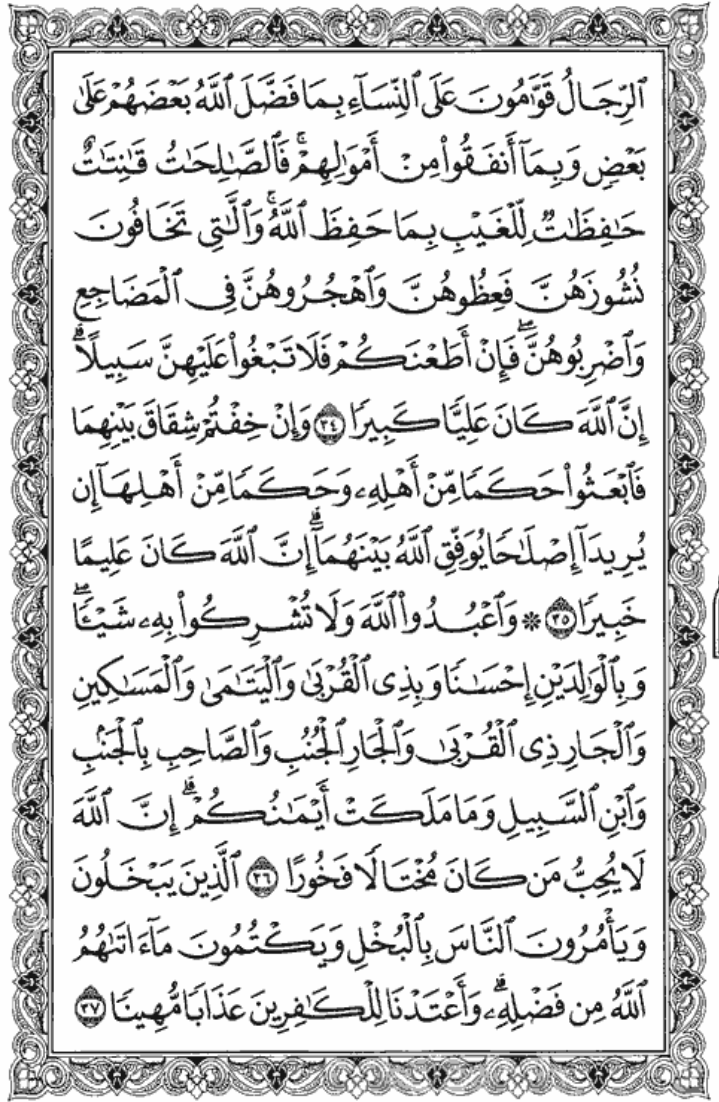 ٱلرِّجَالُ قَوَّٰمُونَ عَلَى ٱلنِّسَآءِ بِمَا فَضَّلَ ٱللَّهُ بَعْضَهُمْ عَلَىٰ
بَعْضٍ وَبِمَآ أَنفَقُوا۟ مِنْ أَمْوَٰلِهِمْ ۚ فَٱلصَّٰلِحَٰتُ قَٰنِتَٰتٌ
حَٰفِظَٰتٌ لِّلْغَيْبِ بِمَا حَفِظَ ٱللَّهُ ۚ وَٱلَّٰتِى تَخَافُونَ
نُشُوزَهُنَّ فَعِظُوهُنَّ وَٱهْجُرُوهُنَّ فِى ٱلْمَضَاجِعِ
وَٱضْرِبُوهُنَّ ۖ فَإِنْ أَطَعْنَكُمْ فَلَا تَبْغُوا۟ عَلَيْهِنَّ سَبِيلًا ۗ
إِنَّ ٱللَّهَ كَانَ عَلِيًّا كَبِيرًا ٣٤ وَإِنْ خِفْتُمْ شِقَاقَ بَيْنِهِمَا
فَٱبْعَثُوا۟ حَكَمًا مِّنْ أَهْلِهِۦ وَحَكَمًا مِّنْ أَهْلِهَآ إِن
يُرِيدَآ إِصْلَٰحًا يُوَفِّقِ ٱللَّهُ بَيْنَهُمَآ ۗ إِنَّ ٱللَّهَ كَانَ عَلِيمًا
خَبِيرًا ٣٥ ۞ وَٱعْبُدُوا۟ ٱللَّهَ وَلَا تُشْرِكُوا۟ بِهِۦ شَيْـًٔا ۖ
وَبِٱلْوَٰلِدَيْنِ إِحْسَٰنًا وَبِذِى ٱلْقُرْبَىٰ وَٱلْيَتَٰمَىٰ وَٱلْمَسَٰكِينِ
وَٱلْجَارِ ذِى ٱلْقُرْبَىٰ وَٱلْجَارِ ٱلْجُنُبِ وَٱلصَّاحِبِ بِٱلْجَنۢبِ
وَٱبْنِ ٱلسَّبِيلِ وَمَا مَلَكَتْ أَيْمَٰنُكُمْ ۗ إِنَّ ٱللَّهَ
لَا يُحِبُّ مَن كَانَ مُخْتَالًا فَخُورًا ٣٦ ٱلَّذِينَ يَبْخَلُونَ
وَيَأْمُرُونَ ٱلنَّاسَ بِٱلْبُخْلِ وَيَكْتُمُونَ مَآ ءَاتَىٰهُمُ
ٱللَّهُ مِن فَضْلِهِۦ ۗ وَأَعْتَدْنَا لِلْكَٰفِرِينَ عَذَابًا مُّهِينًا ٣٧